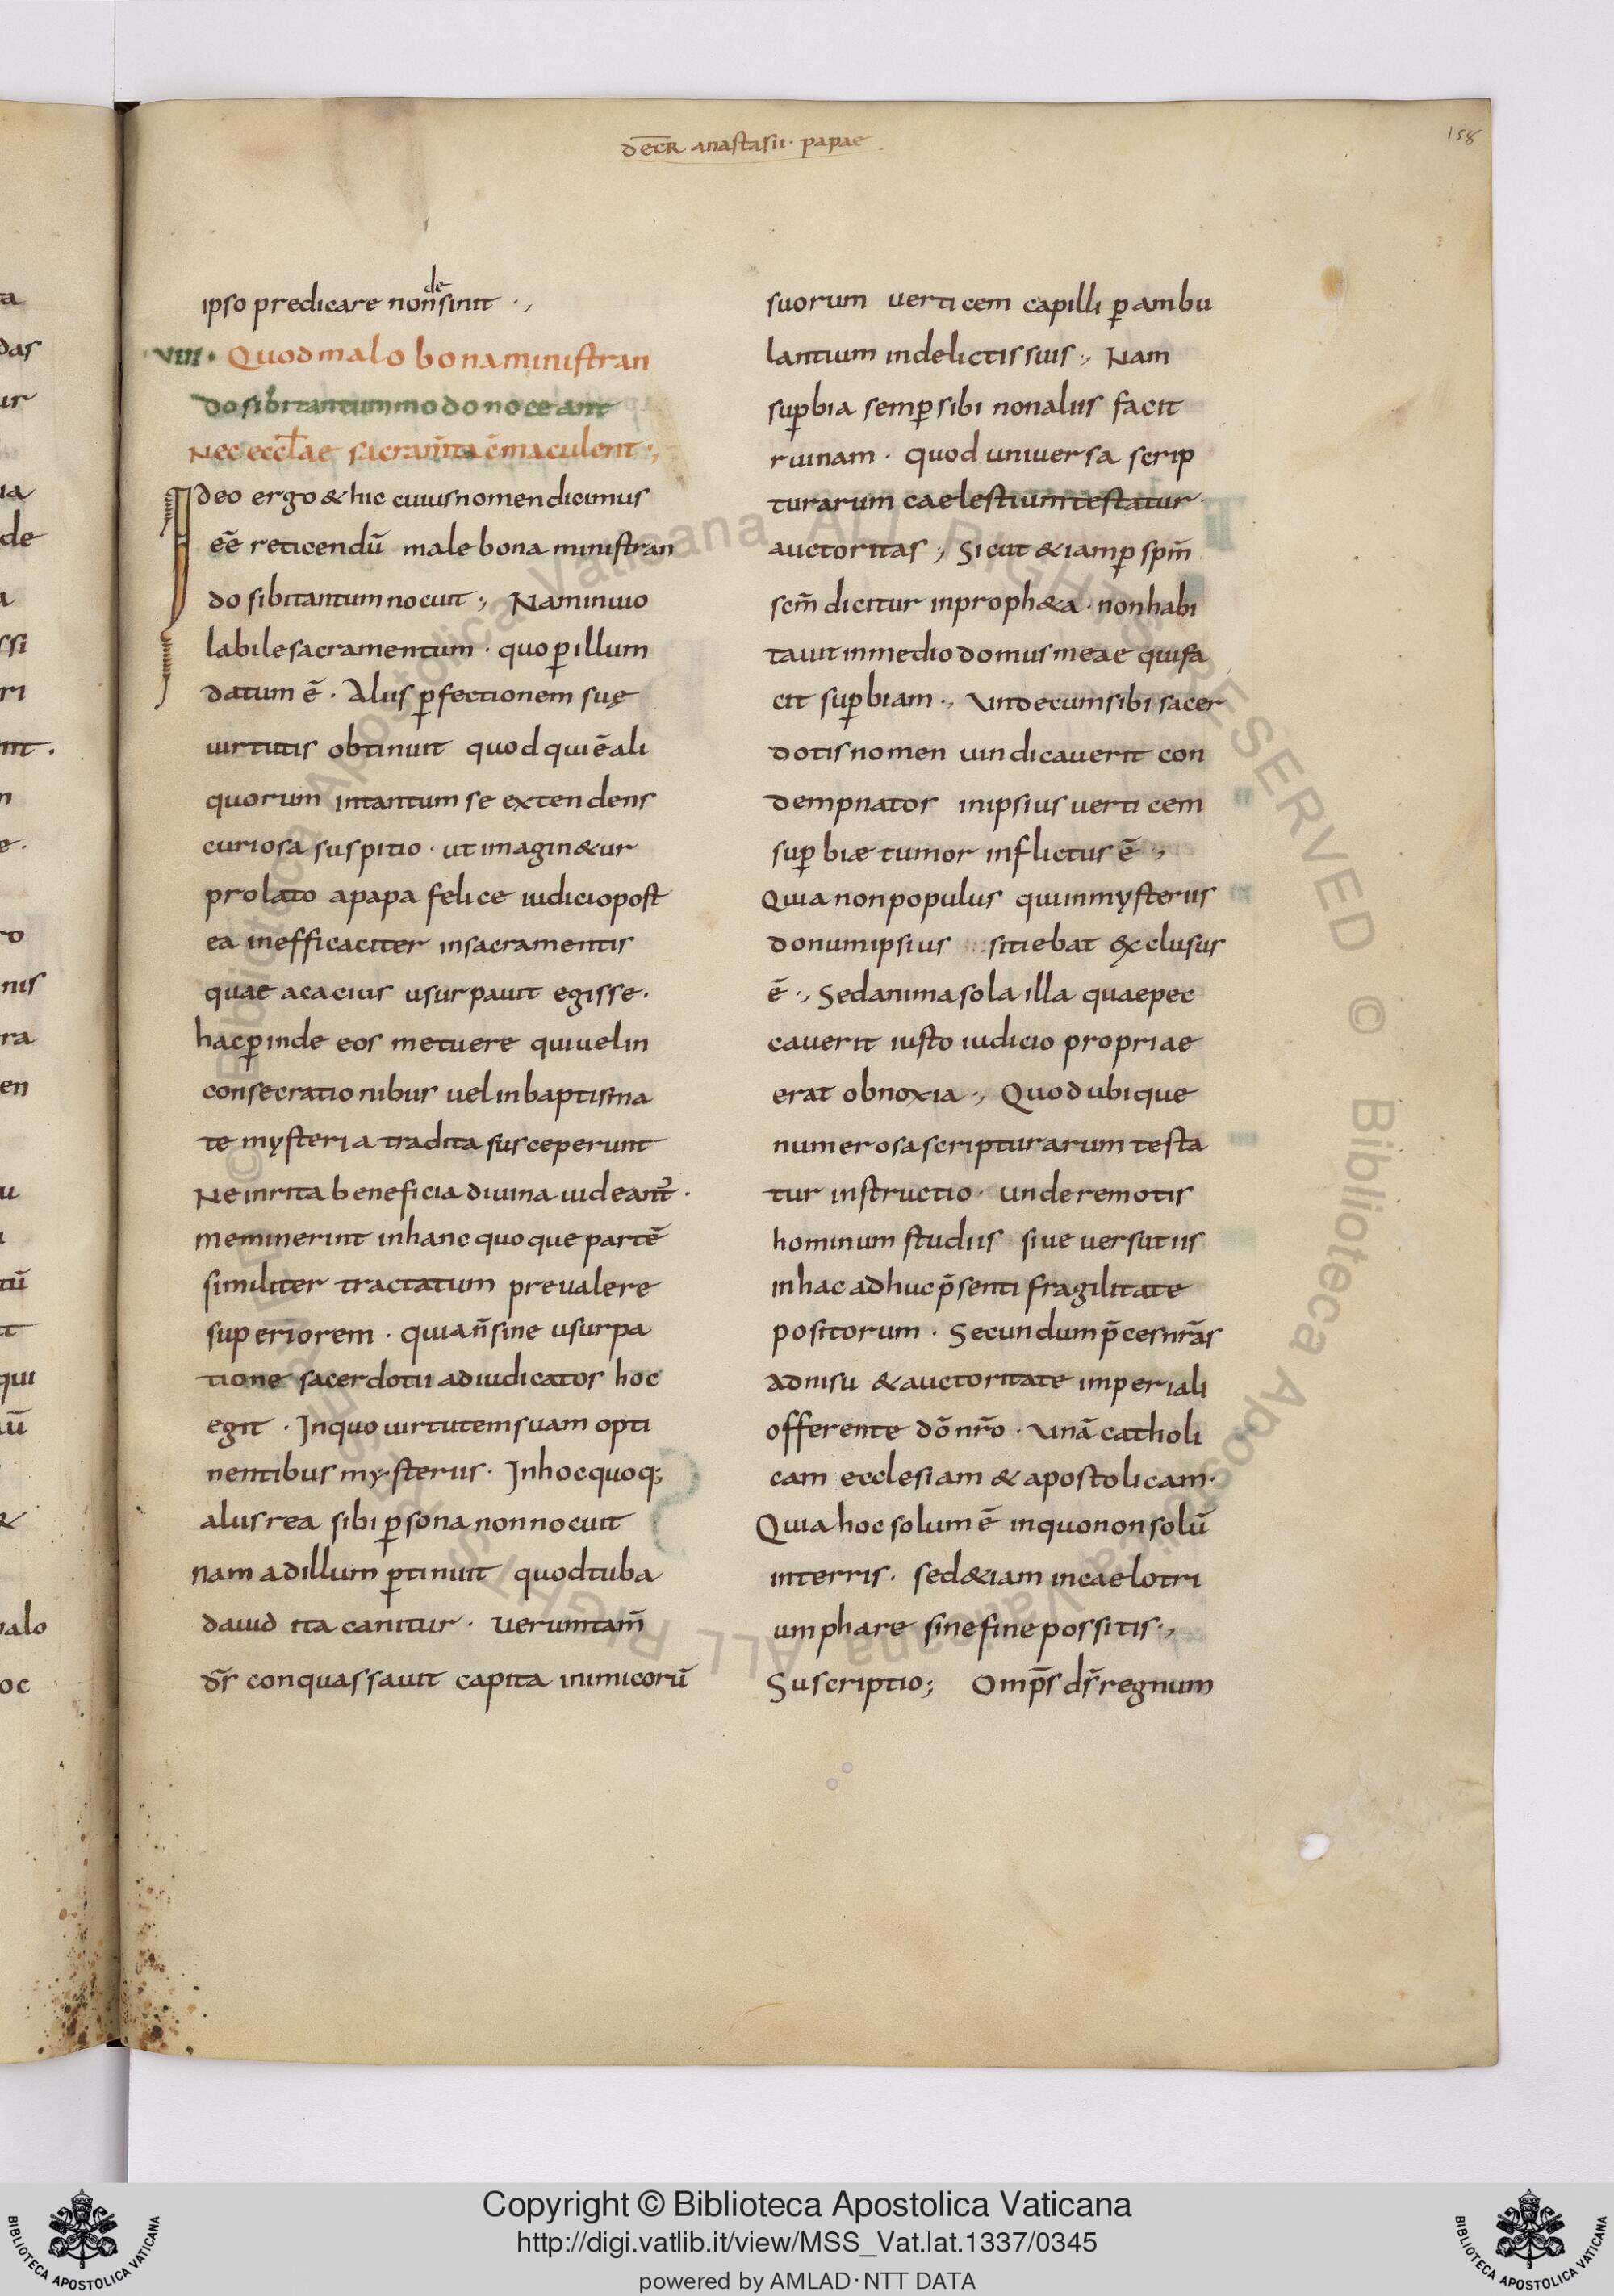 decr̄ anastasii· papae
158
ipso predicare non desinit ·,
·VIIII· Quod malo bona ministran
do sibi tantummodo noceant
Nec eccl̄ae sacram̄ta c̄maculent·,
Ideo ergo & hic cuius nomen dicimus
eē reticendū male bona ministran
do sibi tantum nocuit·, Nam inuio
labile sacramentum · quo ꝑ illum
datum ē · Aliis ꝑfectionem suę
uirtutis obtinuit quod qui ē ali
quorum intantum se extendens
curiosa suspitio · ut imagin&ur
prolato apapa felice iudicio post
ea inefficaciter insacramentis
quae acacius usurpauit egisse·
hac ꝑinde eos metuere qui uel in
consecrationibus uel in baptisma
te mysteria tradita susceperunt
Ne inrita beneficia diuina uideant᷒·
meminerint inhanc quoque partē
similiter tractatum preualere
superiorem · quia n̄ sine usurpa
tione sacerdotii adiudicatos hoc
egit · In quo uirtutem suam opti
nentibus mysteriis· In hoc quoq;
alus rea sibi ꝑsona non nocuit
nam ad illum ꝑtinuit quod tuba
dauid ita canitur · Ueruntam̄
dr̄ conquassauit capita inimicorū
suorum uerticem capilli ꝑambu
lantium indelictis suis·, Nam
suꝑbia semꝑ sibi non aliis facit
ruinam · quod uniuersa scrip
turarum caelestium testatur
auctoritas·, Sicut &iam ꝑ sp̄m
sc̄m dicitur inproph&a · non habi
tauit in medio domus meae qui fa
cit suꝑbiam·, Unde cum sibi sacer
dotis nomen uindicauerit con
dempnator inipsius uerticem
suꝑbiæ tumor inflictus ē·,
Quia non populus qui in mysteriis
donum ipsius sitiebat exclusus
ē·, Sed anima sola illa quae pec
cauerit iusto iudicio propriae
erat obnoxia·, Quod ubique
numerosa scripturarum testa
tur instructio· unde remotis
hominum studiis siue uersutiis
in hac adhuc p̄senti fragilitate
positorum · Secundum p̄ces nr̄as
adnisu & auctoritate imperiali
offerente dō nr̄o · Unā catholi
cam ecclesiam & apostolicam·
Quia hoc solum ē in quo non solū
in terris· sed &iam in caelo tri
umphare sine fine possitis·,
Suscriptio; Omp̄s ds̄ regnum
Copyright © Biblioteca Apostolica Vaticana
http://digi.vatlib.it/view/MSS_Vat.lat.1337/0345
powered by AMLAD·NTT DATA
BIBLIOTECA APOSTOLICA VATICANA
BIBLIOTECA APOSTOLICA VATICANA